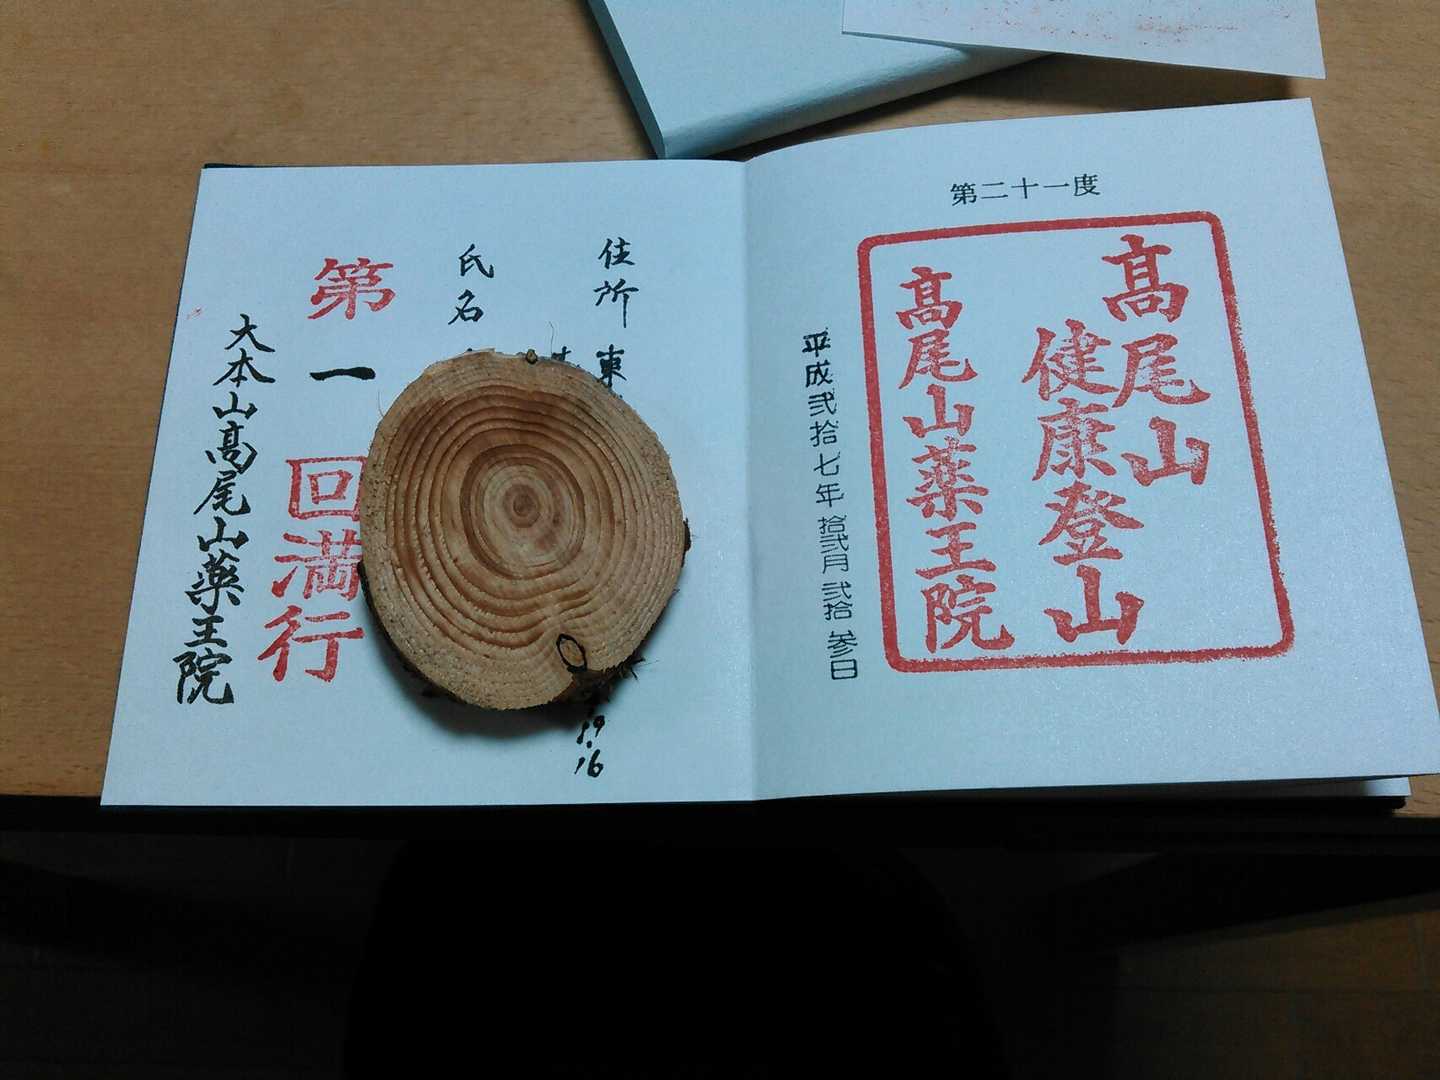 第二十一度
髙尾山
健康登山
髙尾山薬王院
平成弐拾七年拾弐月弐拾参日
住所 東
氏名
第一回満行
大本山髙尾山薬王院
19.16